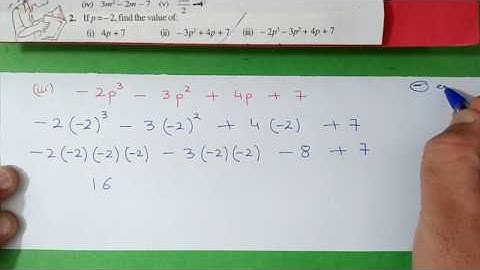 (iv) 3m² – 2m – 7 (v)
2. If p = – 2, find the value of:
(i) 4p + 7 (ii) – 3p² + 4p + 7 (iii) – 2p³ – 3p² + 4p + 7
(iii) - 2p³ - 3p² + 4p + 7
- 2 (-2)³ - 3 (-2)² + 4 (-2) + 7
- 2 (-2) (-2) (-2) - 3 (-2) (-2) - 8 + 7
16